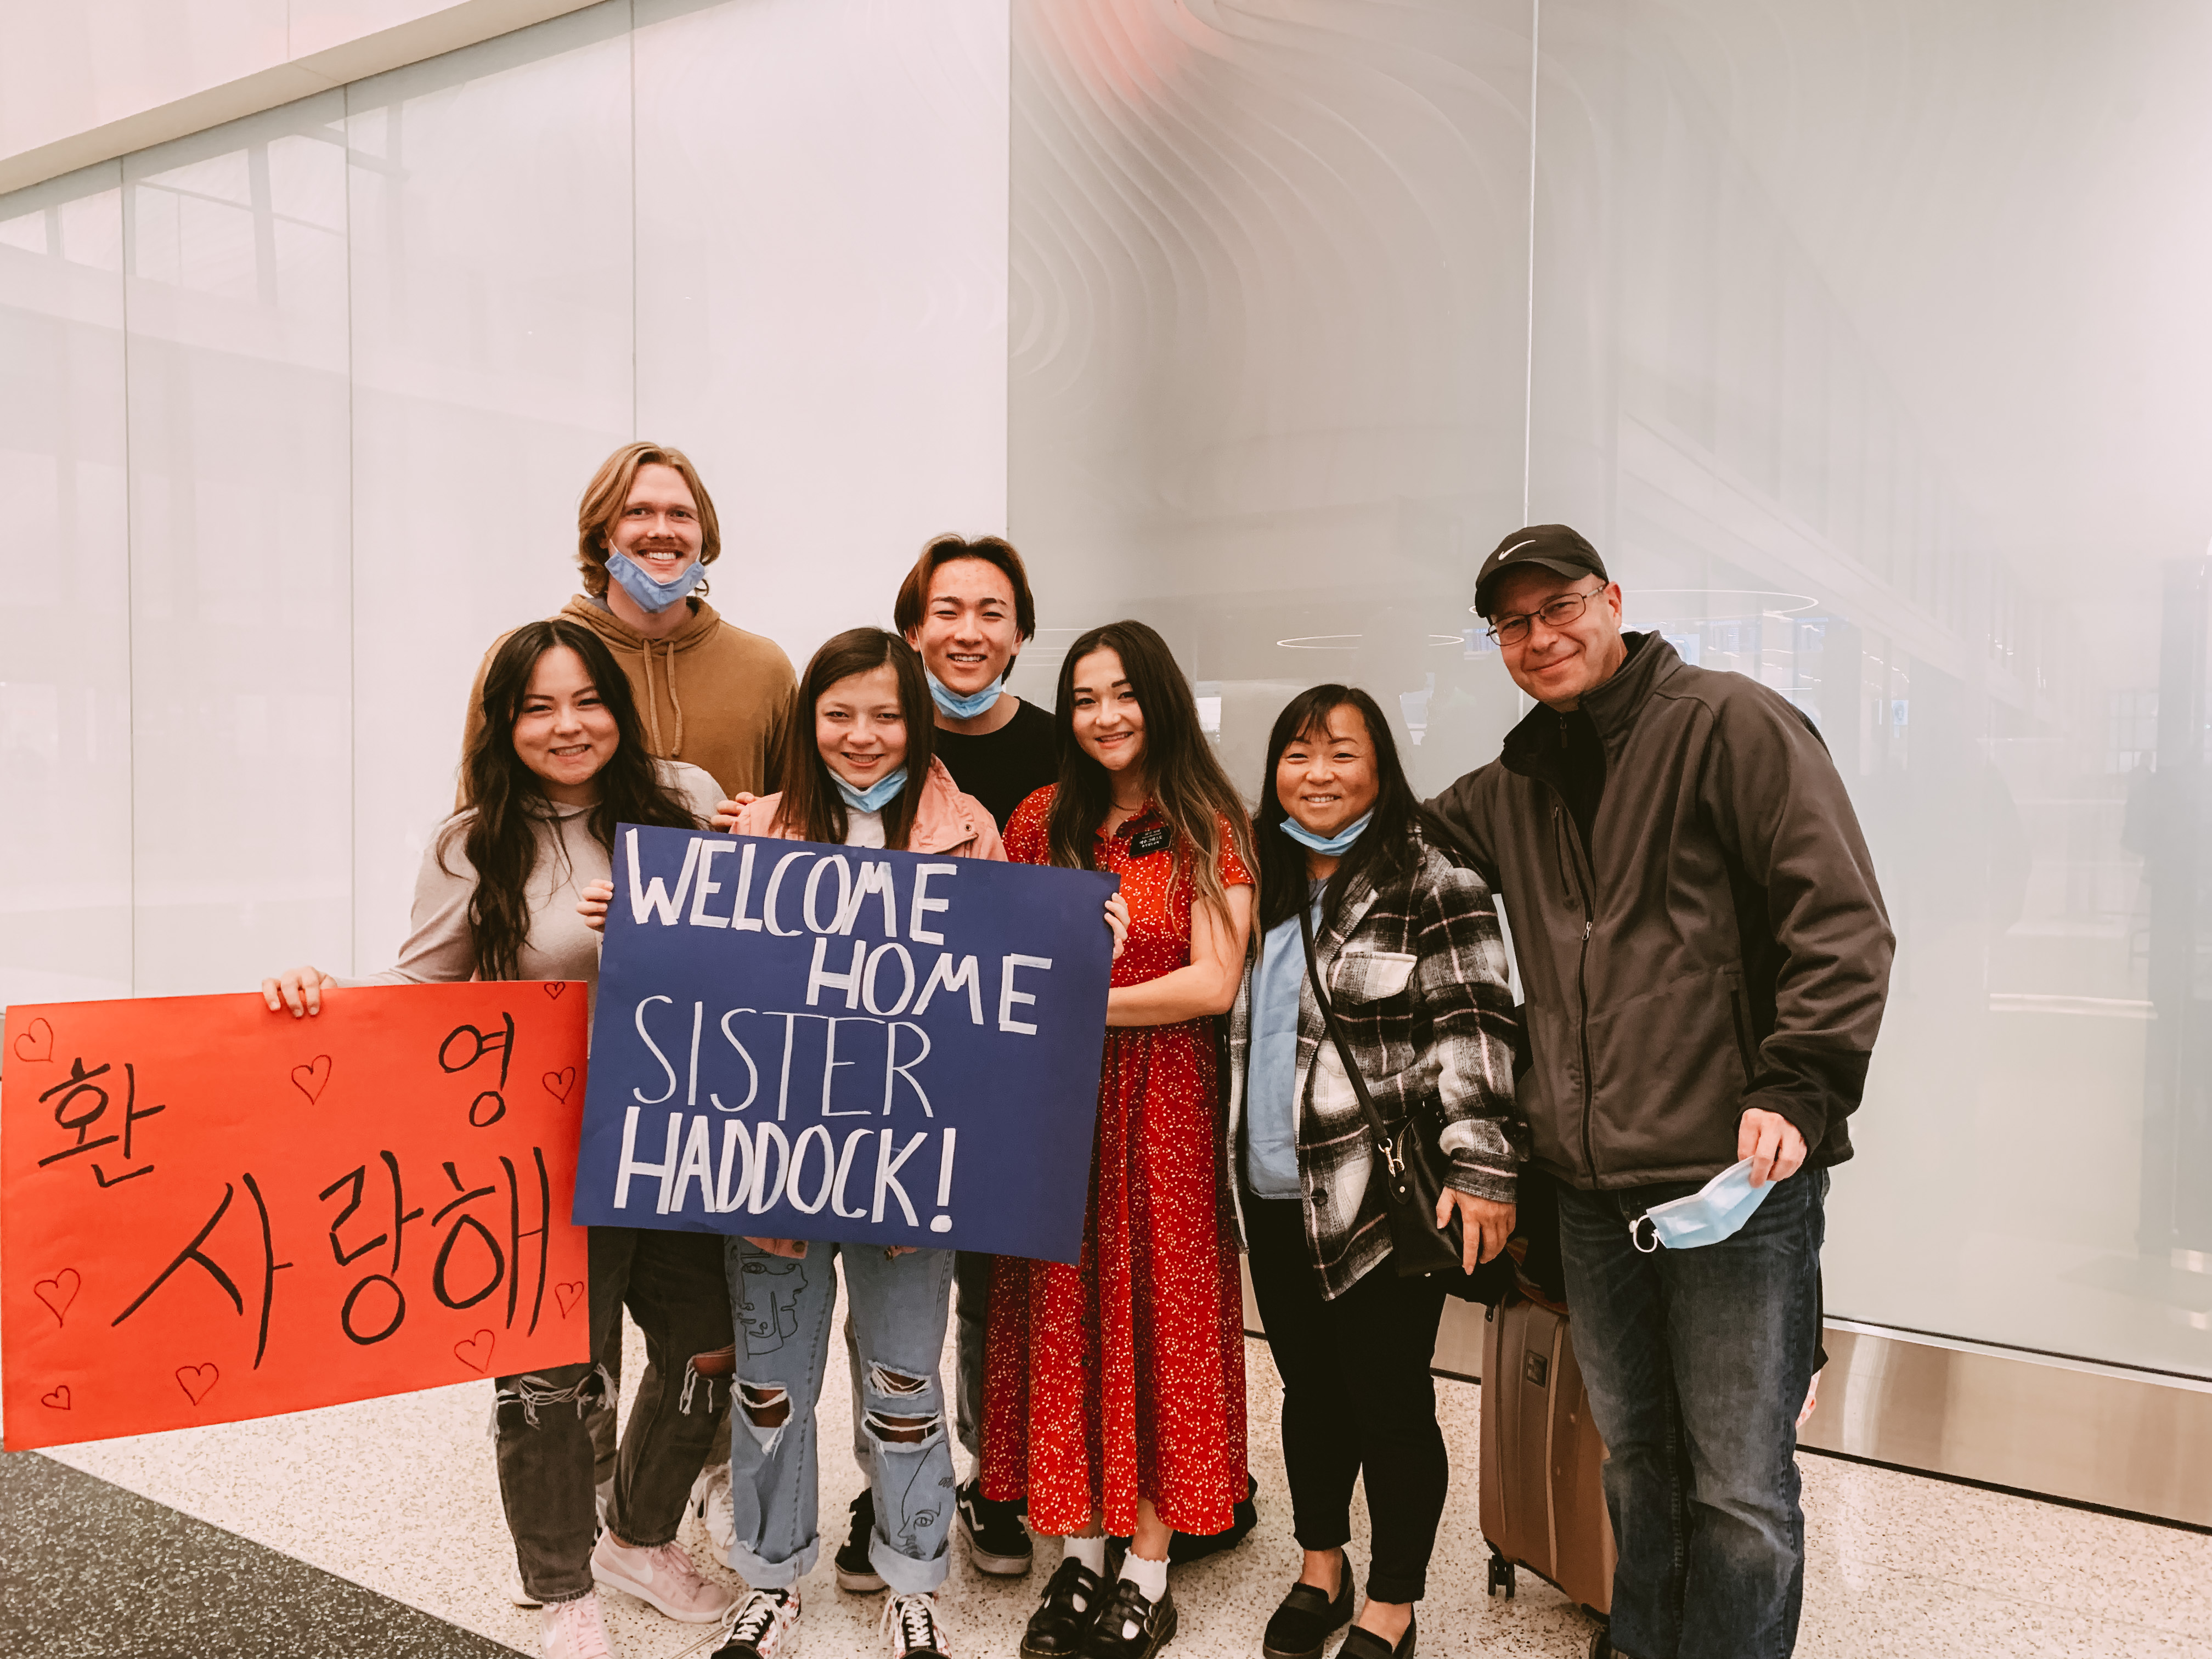 환 영
사랑해
WELCOME
HOME
SISTER
HADDOCK!